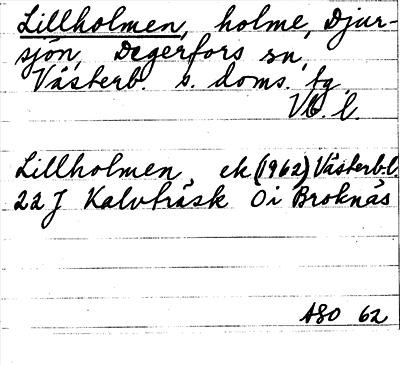 Lillholmen, holme, Djur-
sjön, Degerfors sn,
Västerb. s. doms. fg,
Vb. l.
Lillholmen, ek (1962) Västerb.l.
22 J Kalvträsk Oi Broknäs
ASO 62